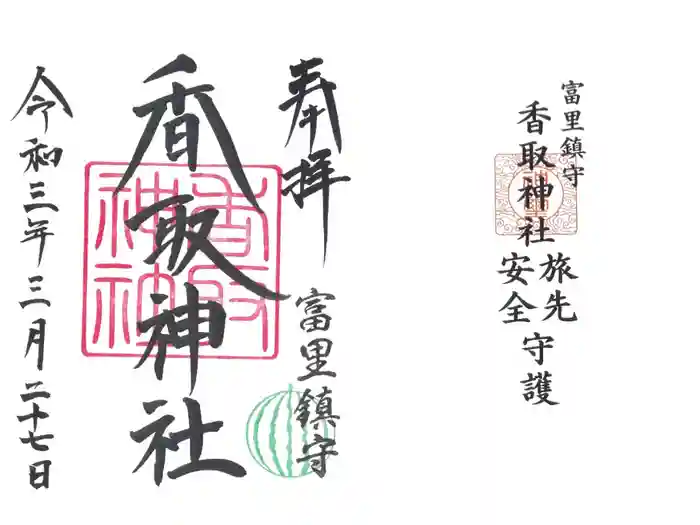 富里鎮守
香取神社
旅先
安全
守護
奉拝
富里鎮守
香取神社
香取
神社
令和三年三月二十七日